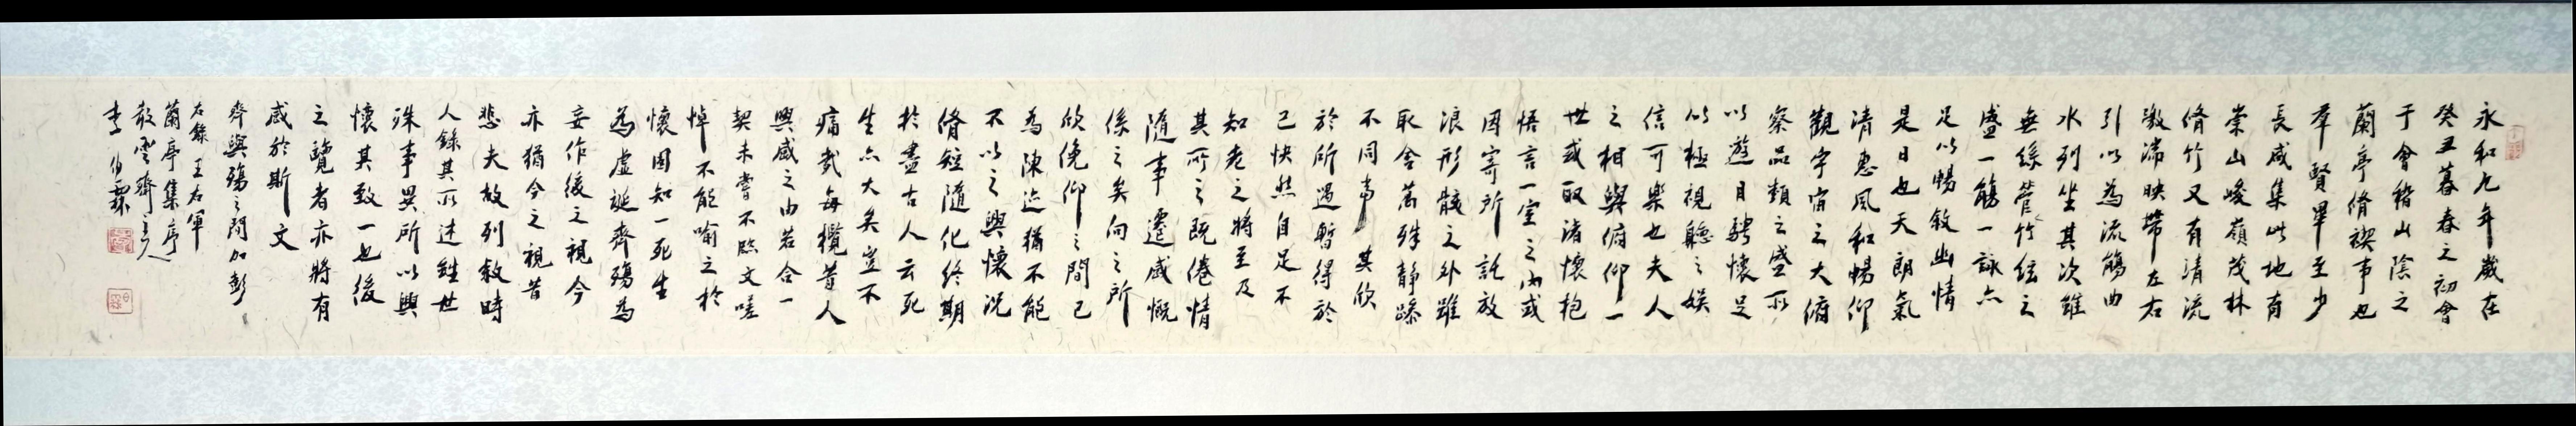 永和九年歲在
癸丑暮春之初會
于會稽山陰之
蘭亭脩禊事也
羣賢畢至少
長咸集此地有
崇山峻嶺茂林
脩竹又有清流
激湍映帶左右
引以為流觴曲
水列坐其次雖
無絲管竹絃之
盛一觴一詠亦
足以暢敘幽情
是日也天朗氣
清惠風和暢仰
觀宇宙之大俯
察品類之盛所
以遊目騁懷足
以極視聽之娛
信可樂也夫人
之相與俯仰一
世或取諸懷抱
悟言一室之內或
因寄所託放
浪形骸之外雖
取舍萬殊靜躁
不同當其欣
於所遇暫得於
己快然自足不
知老之將至及
其所之既倦情
隨事遷感慨
係之矣向之所
欣俛仰之間已
為陳迹猶不能
不以之興懷況
脩短隨化終期
於盡古人云死
生亦大矣豈不
痛哉每攬昔人
興感之由若合一
契未嘗不臨文嗟
悼不能喻之於
懷固知一死生
為虛誕齊殤為
妄作後之視今
亦猶今之視昔
悲夫故列敘時
人錄其所述雖世
殊事異所以興
懷其致一也後
之覽者亦將有
感於斯文
齊與殤之間加彭
右錄王右軍
蘭亭集序
散雲齋
李伯霖